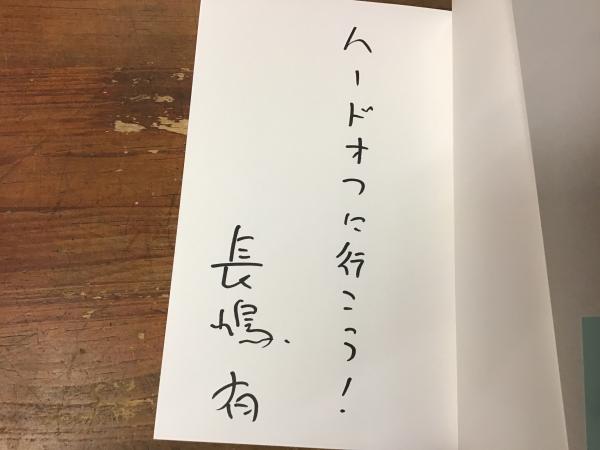 ハードオフに行こう!
長嶋有